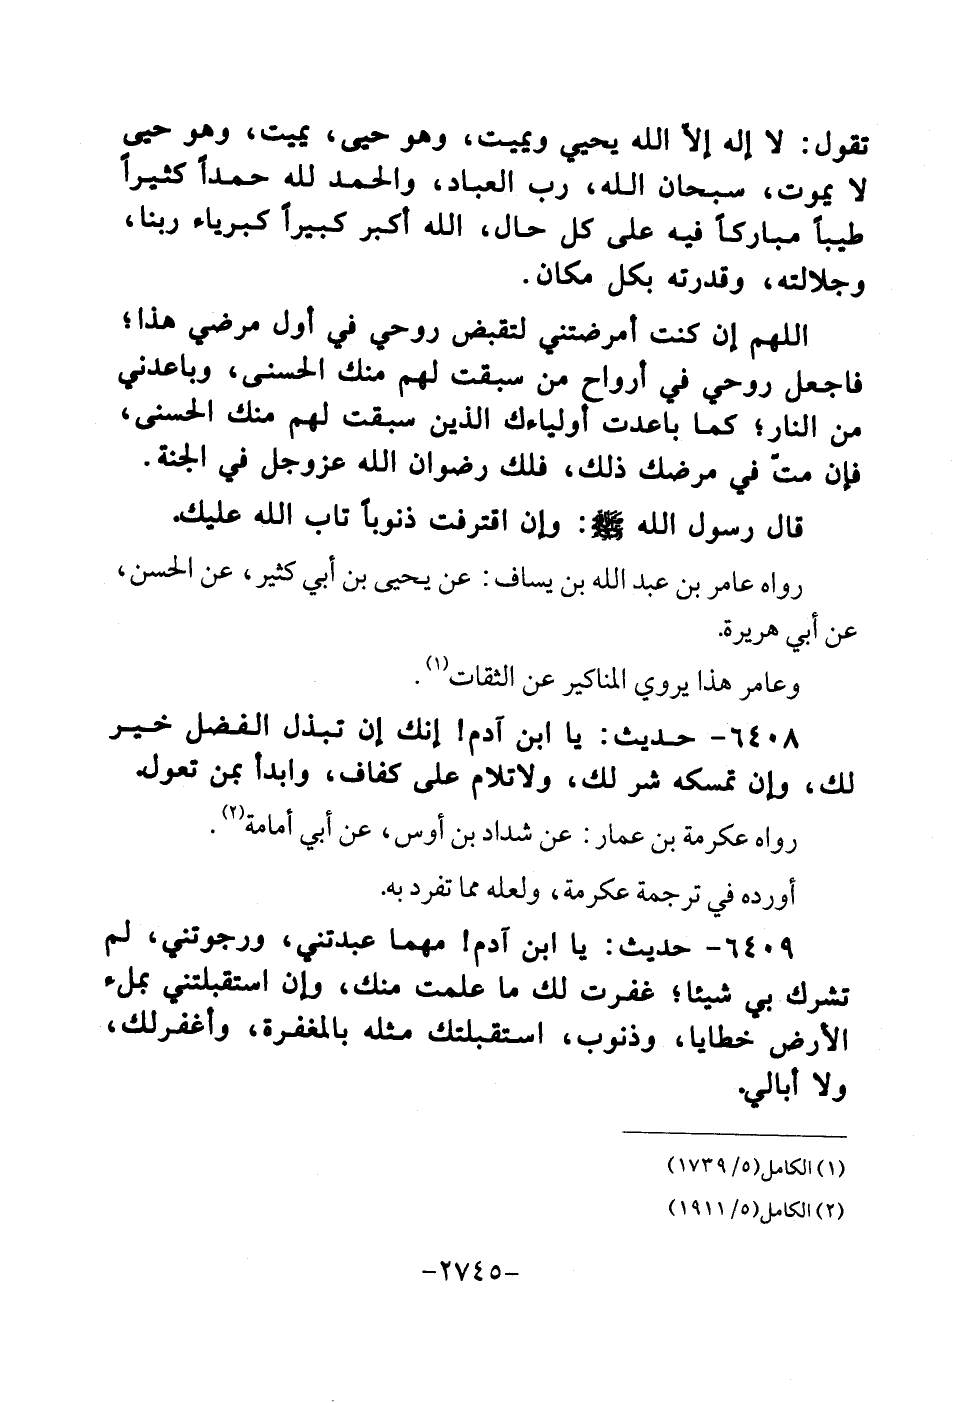 تقول: لا إله إلاّ الله يحيي ويميت، وهو حيى، يميت، وهو حيى
لا يموت، سبحان الله، رب العباد، والحمد لله حمداً كثيراً
طيباً مباركاً فيه على كل حال، الله أكبر كبيراً كبرياء ربنا،
وجلالته، وقدرته بكل مكان.
اللهم إن كنت أمرضتني لتقبض روحي في أول مرضي هذا؛
فاجعل روحي في أرواح من سبقت لهم منك الحسنى، وباعدني
من النار؛ كما باعدت أولياءك الذين سبقت لهم منك الحسنى،
فإن متّ في مرضك ذلك، فلك رضوان الله عزوجل في الجنة.
قال رسول الله ﷺ: وإن اقترفت ذنوباً تاب الله عليك.
رواه عامر بن عبد الله بن يساف: عن يحيى بن أبي كثير، عن الحسن،
عن أبي هريرة.
وعامر هذا يروي المناكير عن الثقات(١).
٦٤٠٨- حديث: يا ابن آدم! إنك إن تبذل الفضل خير
لك، وإن تمسكه شر لك، ولاتلام على كفاف، وابدأ بمن تعول.
رواه عكرمة بن عمار: عن شداد بن أوس، عن أبي أمامة(٢).
أورده في ترجمة عكرمة، ولعله مما تفرد به.
٦٤٠٩- حديث: يا ابن آدم! مهما عبدتني، ورجوتني، لم
تشرك بي شيئا؛ غفرت لك ما علمت منك، وإن استقبلتني بملء
الأرض خطايا، وذنوب، استقبلتك مثله بالمغفرة، وأغفرلك،
ولا أبالي.
(١) الكامل(٥/ ١٧٣٩)
(٢) الكامل(٥/ ١٩١١)
-٢٧٤٥-